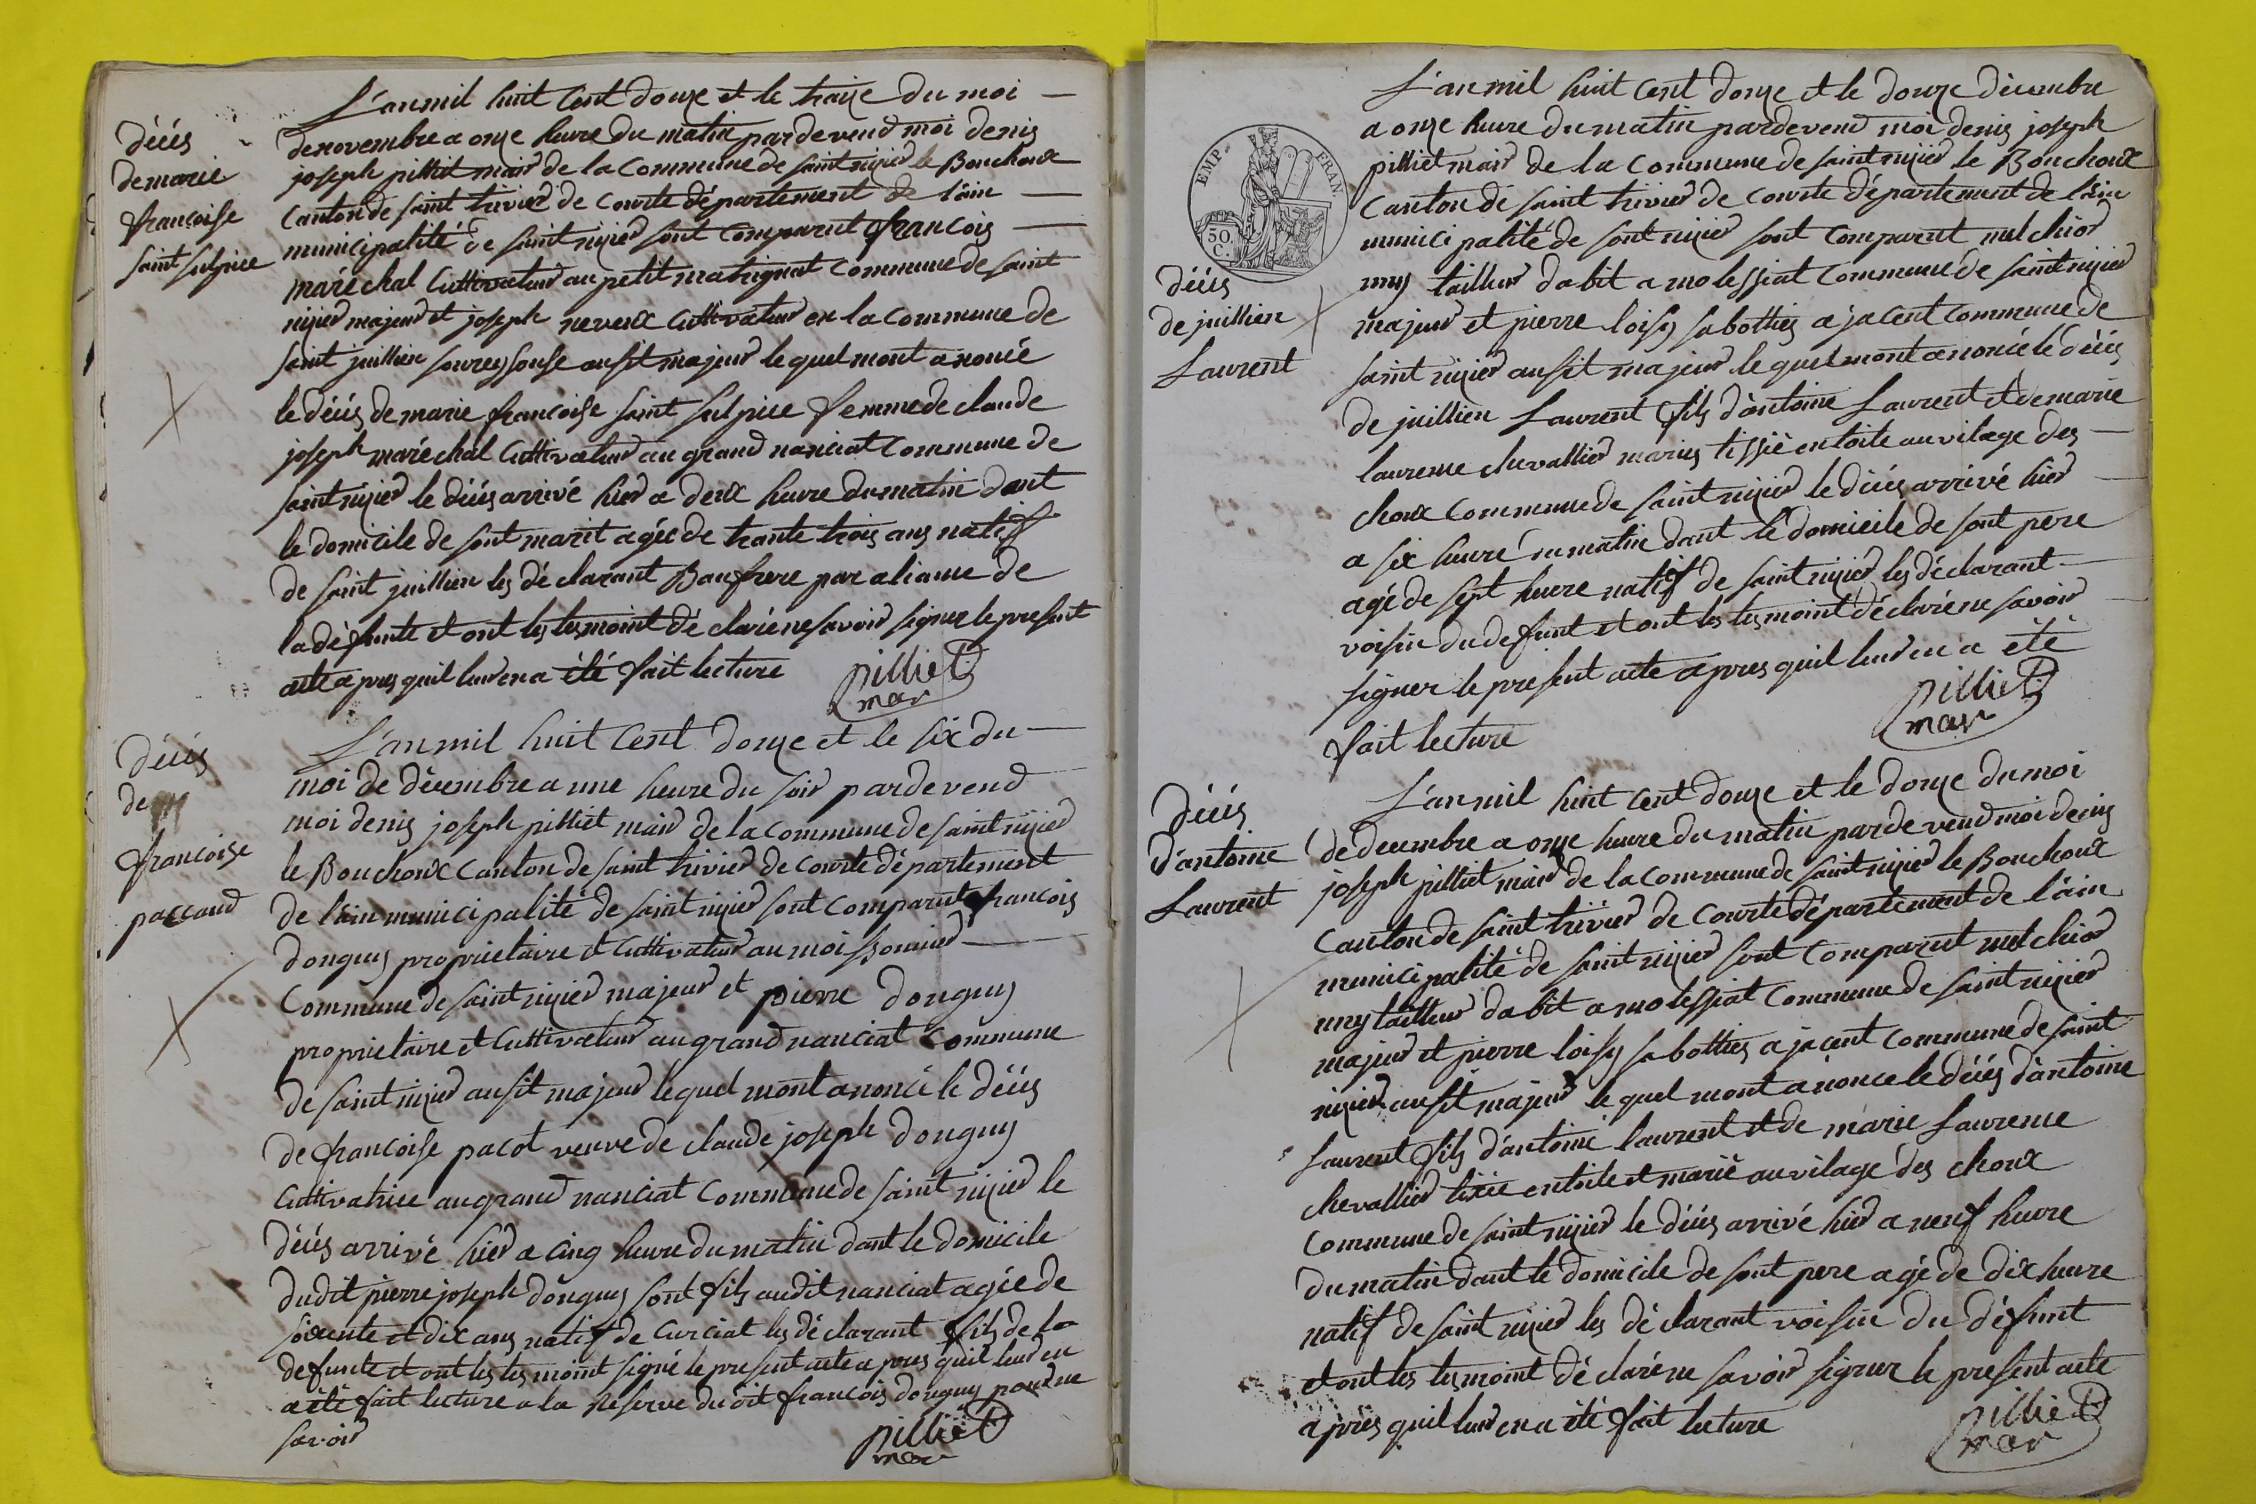 L'an mil huit cent douze et le traize du moi
décès
de marie
francoise
saint sulpice
de novembre a onze heure du matin pardevend moi denis
joseph pilliet mair de la commune de saint nizier le Bouchoux
canton de saint trivier de courte département de l'ain
municipalité de saint nizier sont comparut francois
maréchal cultivateur au petit matignat commune de saint
nizier majeur et joseph neveux cultivateur en la commune de
saint juillien sur reyssouse ausit majeur le quel mont anoncé
le décés de marie francoise saint sulpice femme de claude
joseph maréchal cultivateur au grand nanciat commune de
saint nizier le décés arrivé hier a deux heure du matin dant
le domicile de sont marit agée de trante trois ans natif
de saint juillien les déclarant Baufrere par aliance de
la défunte et ont les tesmoint déclaré ne savoir signer le present
acte apres quil leur en a été fait lecture
pilliet
mar
décés
de
francoise
paccaud
L'an mil huit cent douze et le six du
moi de décembre a une heure du soir pardevend
moi denis joseph pilliet mair de la commune de saint nizier
le Bouchoux canton de saint trivier de courte département
de l'ain municipalité de saint nizier sont comparut francois
donguy proprietaire et cultivateur au moissonnier
commune de saint nizier majeur et pierre donguy
proprietaire et cultivateur au grand nanciat commune
de saint nizier ausit majeur le quel mont anoncé le décés
de francoise pacot veuve de claude joseph donguy
cultivatrice au grand nanciat commune de saint nizier le
décés arrivé hier a cinq heure du matin dant le domicile
dudit pierre joseph donguy sont fils audit nanciat agée de
soixente et dix ans natif de curciat les déclarant fils de la
defunte et ont les tesmoint signé le present acte apres quil leur en
a été fait lecture a la reserve dudit francois donguy pour ne
savoir
pilliet
mar
EMP. FRAN.
50
C.
décés
de juillien
Laurent
L'an mil huit cent douze et le douze décembre
a onze heure du matin pardevend moi denis joseph
pilliet mair de la commune de saint nizier le Bouchoux
canton de saint trivier de courte département de l'ain
municipalité de sont nizier sont comparut melchior
uny tailleur dabit a molessiat commune de saint nizier
majeur et pierre loisy sabottier a jacent commune de
saint nizier ausit majeur le quel mont anoncé le décés
de juillien Laurent fils d'antoine Laurent et de marie
laurence chevallier mariés tissié en toile au vilage des
choux commune de saint nizier le décés arrivé hier
a six heure du matin dant le domicile de sont pere
agé de sept heure natif de saint nizier les déclarant
voisin du defunt et ont les tesmoint déclaré ne savoir
signer le present acte apres quil leur en a été
fait lecture
pilliet
mar
décés
d'antoine
Laurent
L'an mil huit cent douze et le douze du moi
de decembre a onze heure du matin pardevend moi denis
joseph pilliet mair de la commune de saint nizier le Bouchoux
canton de saint trivier de courte département de l'ain
municipalité de saint nizier sont comparut melchior
uny tailleur dabit a molessiat commune de saint nizier
majeur et pierre loisy sabottier a jacent commune de saint
nizier ausit majeur le quel mont anonce le décés d'antoine
Laurent fils d'antoine laurent et de marie Laurence
chevallier tixié en toile et marié au vilage des choux
commune de saint nizier le décés arrivé hier a neuf heure
du matin dant le domicile de sont pere agé de dix heure
natif de saint nizier les déclarant voisin du défunt
et ont les tesmoint déclaré ne savoir signer le present acte
apres quil leur en a été fait lecture
pilliet
mar